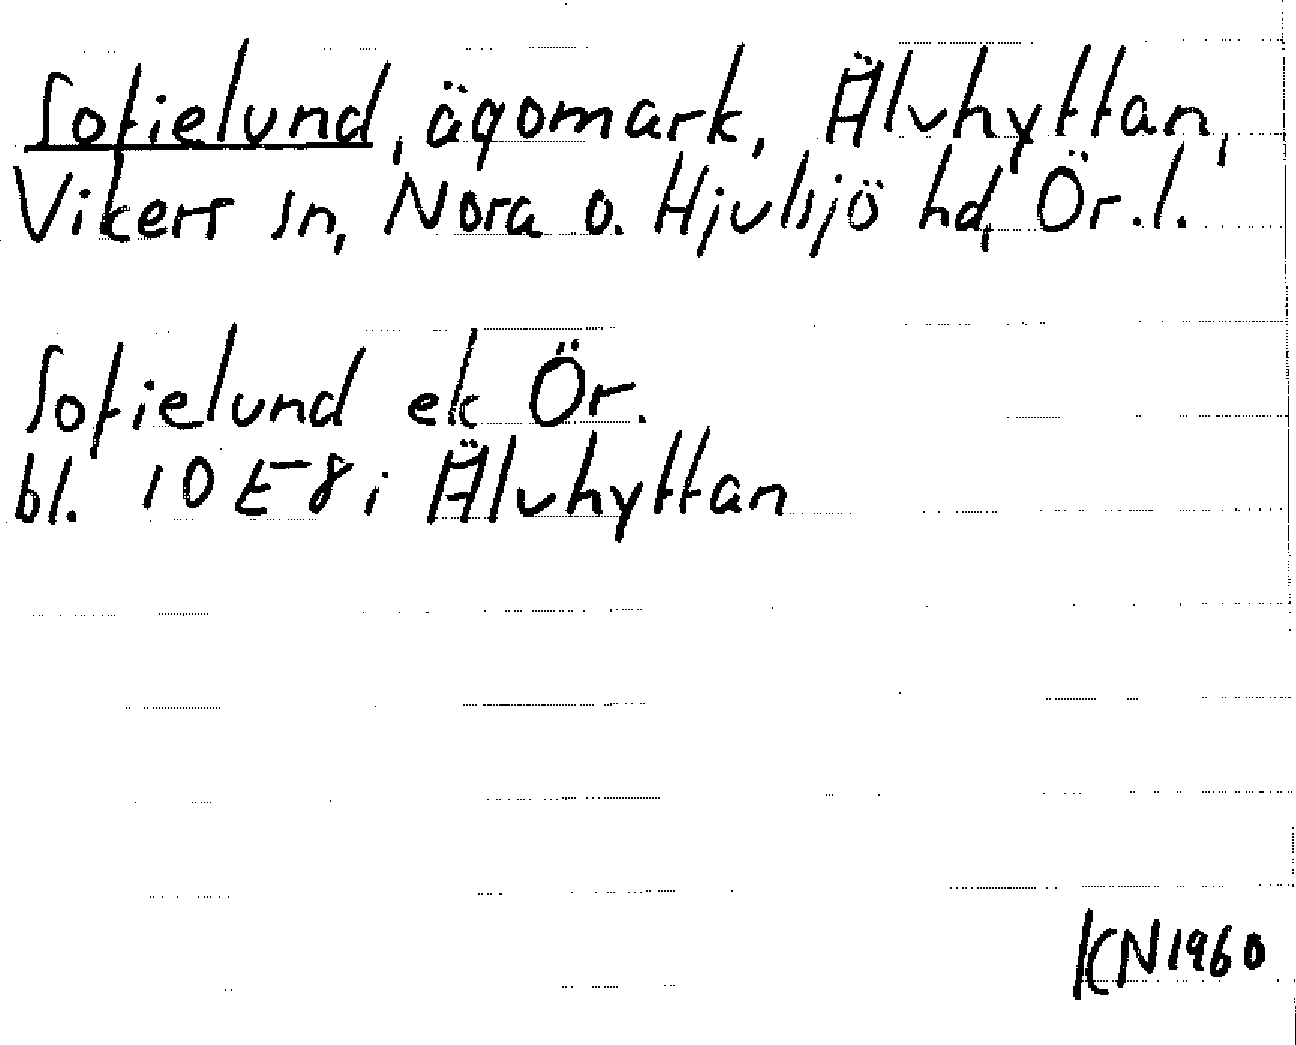 Sofielund, ägomark, Älvhyttan,
Vikers sn, Nora o. Hjulsjö hd, Ör.l.
Sofielund ek Ör.
bl. 10 E-8 i Älvhyttan
KN1960